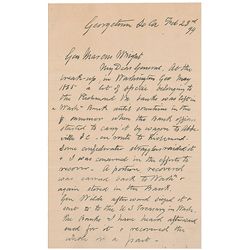 Georgetown So Ca Feb 23rd
99
Gen Marcus Wright
My Dear General, At the
break-up, in Washington Geo May
1865 a lot of specie belonging
to the Richmond Va banks was left in
Wash" Bank until sometime in the
summer when the Bank officers
started to carry it by wagon to Abbe
ville S.C. en route to Richmond.
Some confederate stragglers raided it
& I was concerned in the efforts to
recover. A portion recovered
was carried back to Wash" &
again stored in the Bank.
Gen Wilde afterward seized it &
sent it to the U.S Treasury in Wash,
the Banks I have heard afterward
sued for it & recovered the
whole or a part.